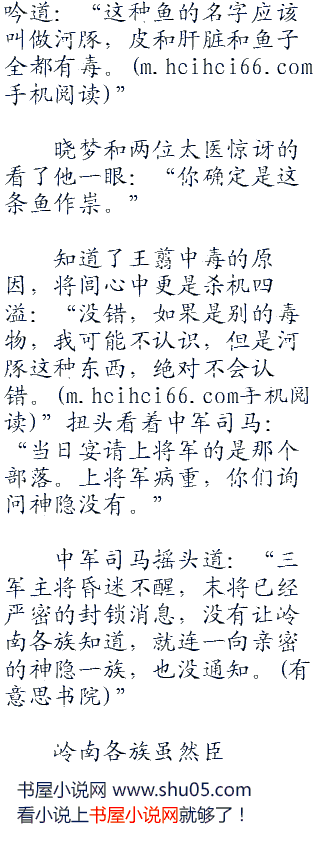 吟道：“这种鱼的名字应该
叫做河豚，皮和肝脏和鱼子
全都有毒。(m.hcihci66.com
手机阅读)”
晓梦和两位太医惊讶的
看了他一眼：“你确定是这
条鱼作祟。”
知道了王翦中毒的原
因，将闾心中更是杀机四
溢：“没错，如果是别的毒
物，我可能不认识，但是河
豚这种东西，绝对不会认
错。(m.hcihci66.com手机阅
读)”扭头看着中军司马：
“当日宴请上将军的是那个
部落。上将军病重，你们询
问神隐没有。”
中军司马摇头道：“三
军主将昏迷不醒，末将已经
严密的封锁消息，没有让岭
南各族知道，就连一向亲密
的神隐一族，也没通知。(有
意思书院)”
岭南各族虽然臣
书屋小说网 www.shu05.com
看小说上书屋小说网就够了！